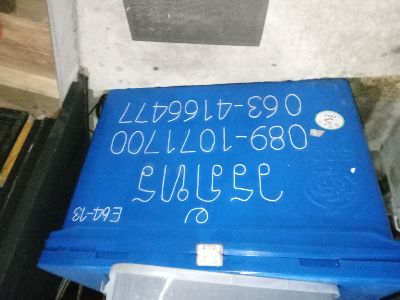 E64-13
วรภัทร
089-1071700
063-4166477